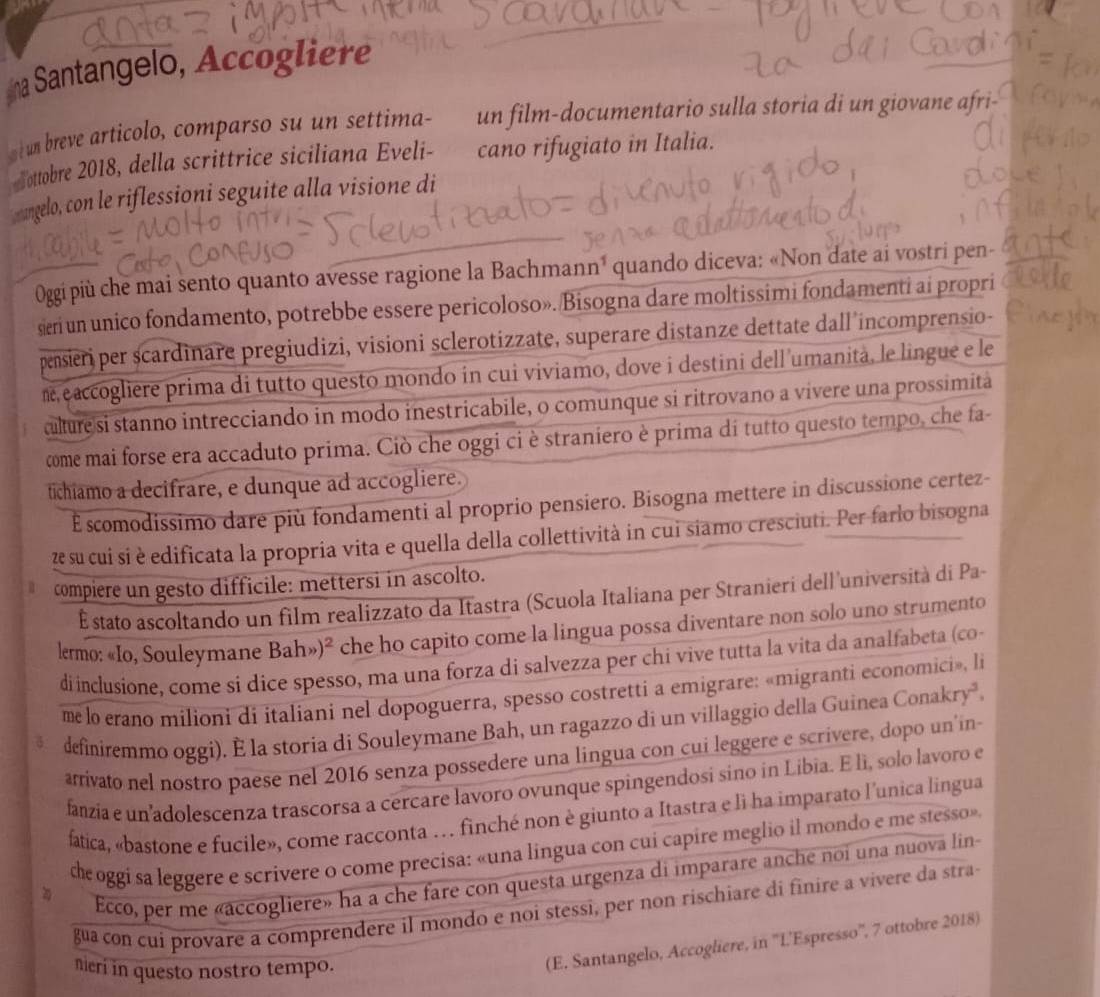 anta = imposta interna scardinare = togliere
za dai Cardini =
Santangelo, Accogliere
un breve articolo, comparso su un settima-
ottobre 2018, della scrittrice siciliana Eveli-
con le riflessioni seguite alla visione di
un film-documentario sulla storia di un giovane afri-
cano rifugiato in Italia.
= molto intri= Sclerotizzato = divenuto rigido,
cato, confuso senza adattamento di
Oggi più che mai sento quanto avesse ragione la Bachmann¹ quando diceva: «Non date ai vostri pen-
sieri un unico fondamento, potrebbe essere pericoloso». Bisogna dare moltissimi fondamenti ai propri
pensieri per scardinare pregiudizi, visioni sclerotizzate, superare distanze dettate dall'incomprensio-
ne, e accogliere prima di tutto questo mondo in cui viviamo, dove i destini dell'umanità, le lingue e le
culture si stanno intrecciando in modo inestricabile, o comunque si ritrovano a vivere una prossimità
come mai forse era accaduto prima. Ciò che oggi ci è straniero è prima di tutto questo tempo, che fa-
tichiamo a decifrare, e dunque ad accogliere.
È scomodissimo dare più fondamenti al proprio pensiero. Bisogna mettere in discussione certez-
ze su cui si è edificata la propria vita e quella della collettività in cui siamo cresciuti. Per farlo bisogna
compiere un gesto difficile: mettersi in ascolto.
È stato ascoltando un film realizzato da Itastra (Scuola Italiana per Stranieri dell'università di Pa-
lermo: «Io, Souleymane Bah»)² che ho capito come la lingua possa diventare non solo uno strumento
di inclusione, come si dice spesso, ma una forza di salvezza per chi vive tutta la vita da analfabeta (co-
me lo erano milioni di italiani nel dopoguerra, spesso costretti a emigrare: «migranti economici», li
definiremmo oggi). È la storia di Souleymane Bah, un ragazzo di un villaggio della Guinea Conakry³,
arrivato nel nostro paese nel 2016 senza possedere una lingua con cui leggere e scrivere, dopo un'in-
fanzia e un'adolescenza trascorsa a cercare lavoro ovunque spingendosi sino in Libia. E lì, solo lavoro e
fatica, «bastone e fucile», come racconta ... finché non è giunto a Itastra e lì ha imparato l'unica lingua
che oggi sa leggere e scrivere o come precisa: «una lingua con cui capire meglio il mondo e me stesso».
20 Ecco, per me «accogliere» ha a che fare con questa urgenza di imparare anche noi una nuova lin-
gua con cui provare a comprendere il mondo e noi stessi, per non rischiare di finire a vivere da stra-
nieri in questo nostro tempo.
(E. Santangelo, Accogliere, in "L'Espresso", 7 ottobre 2018)